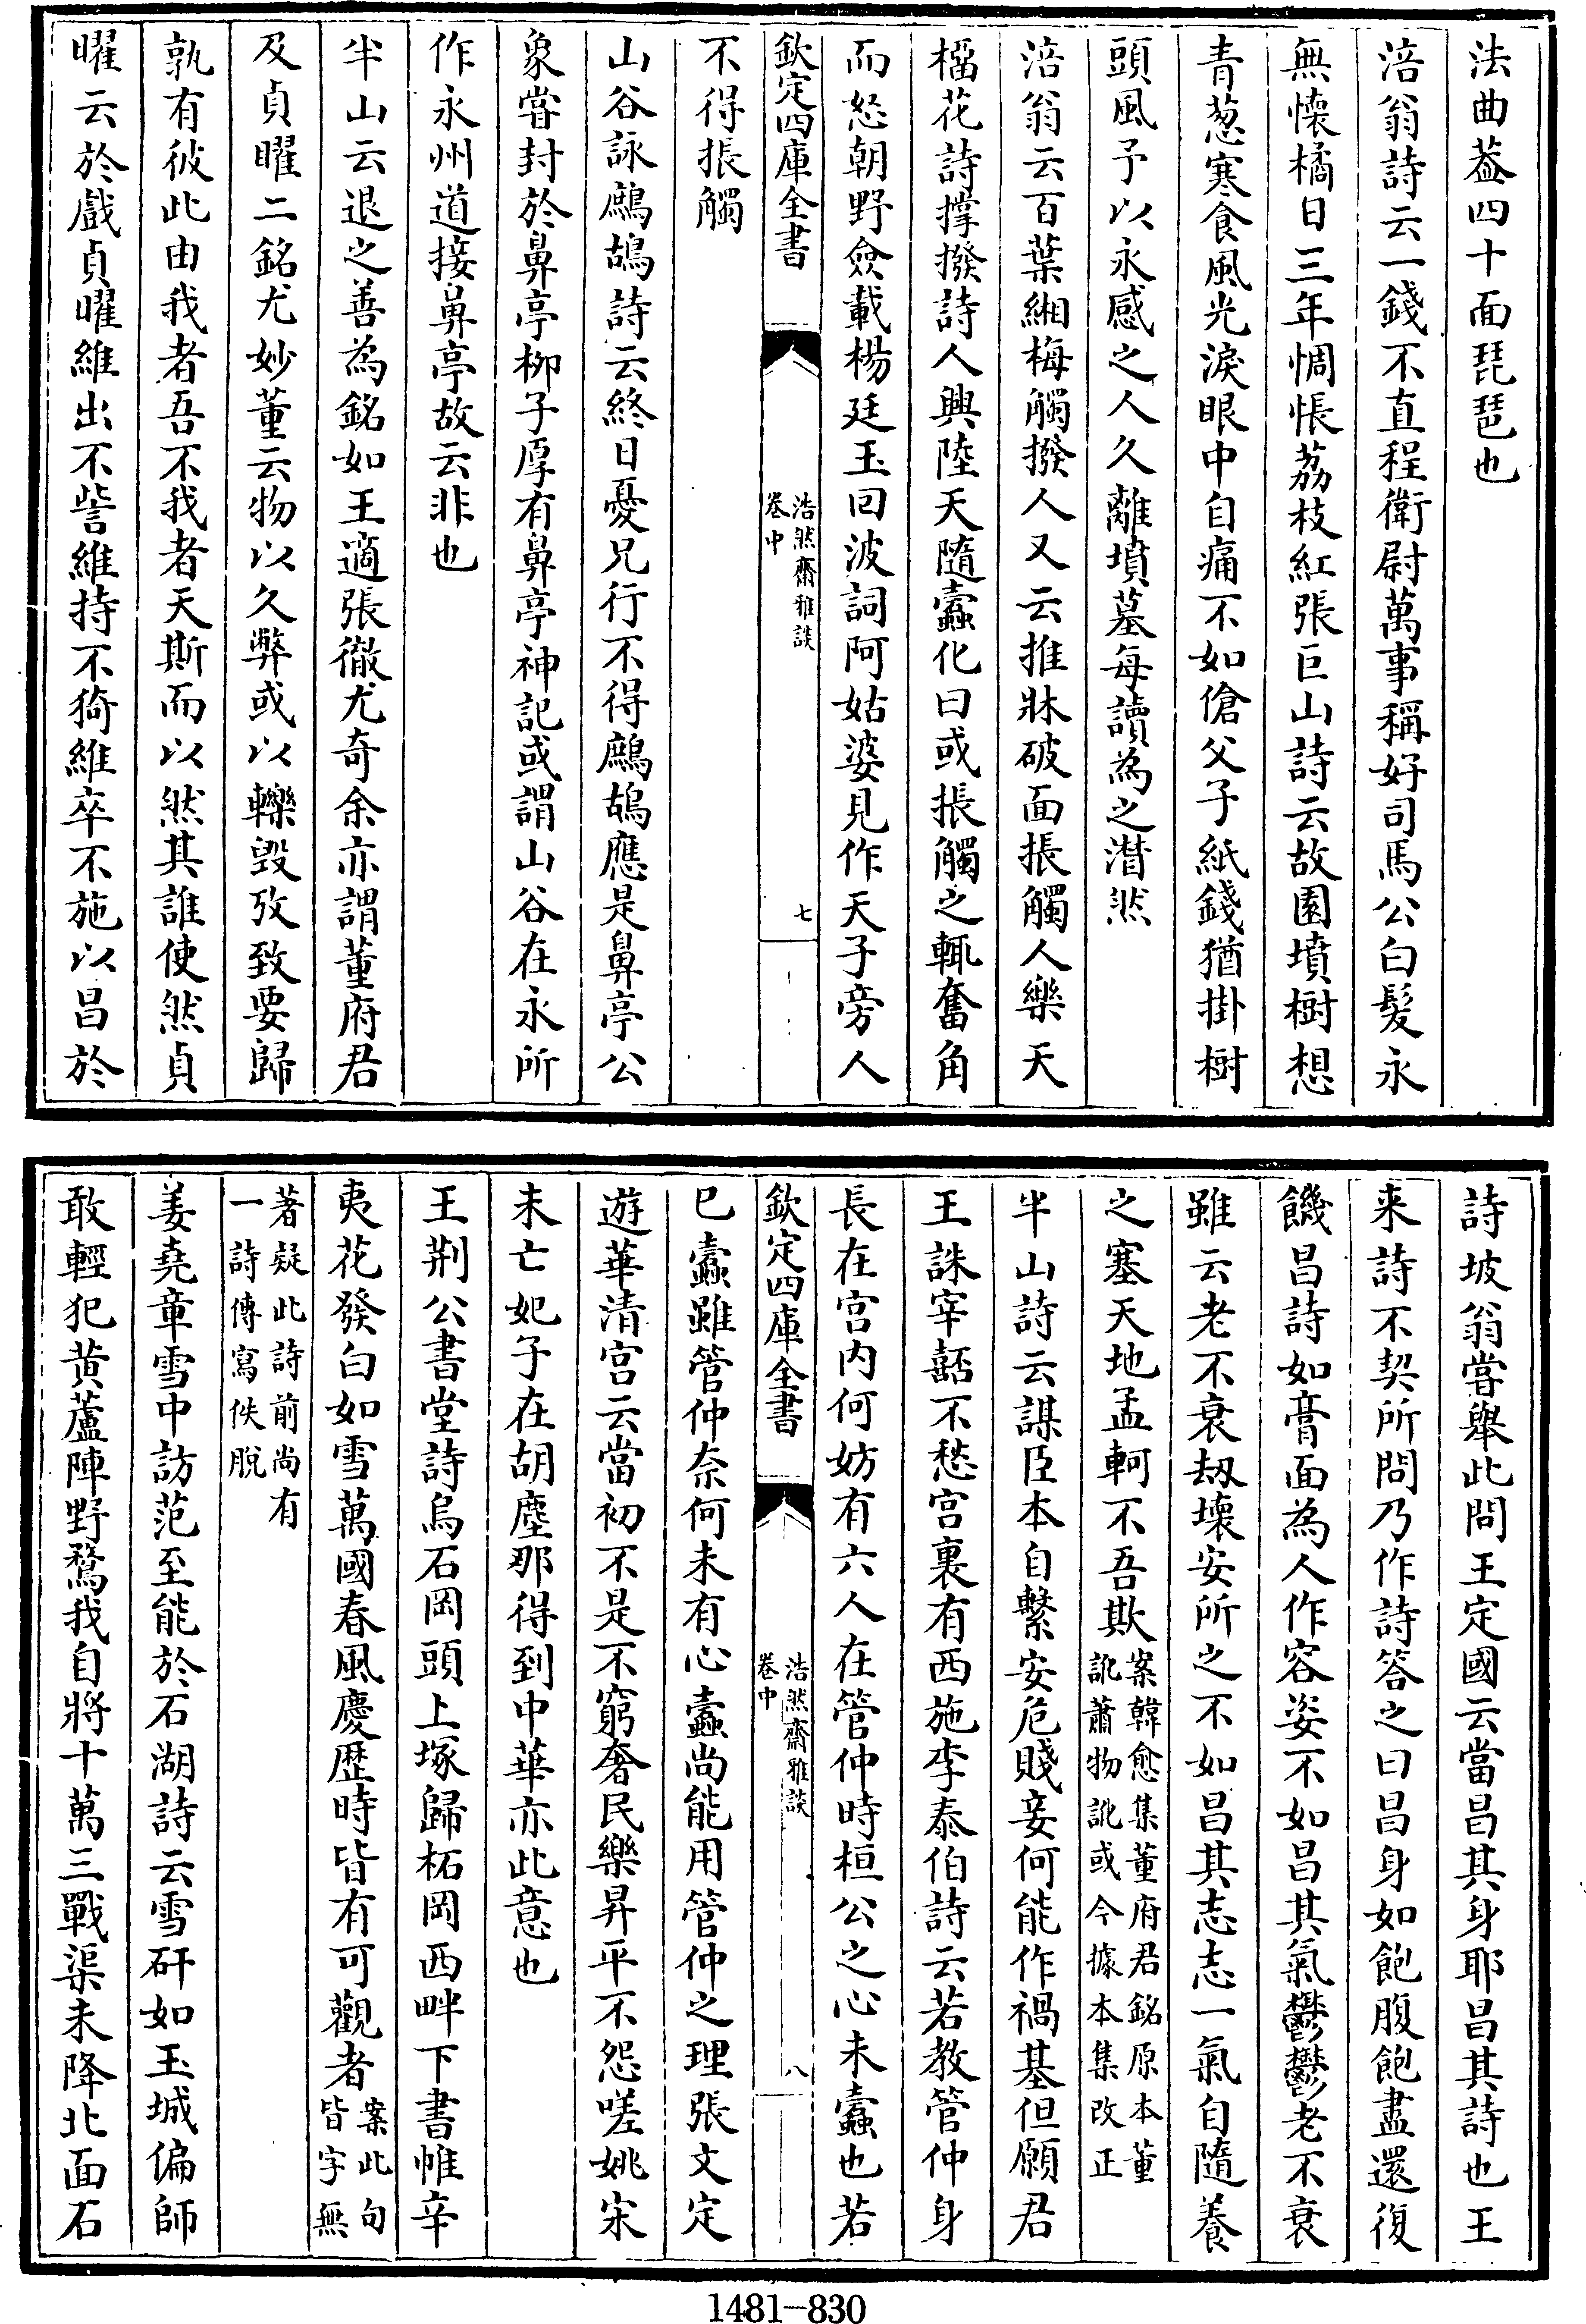 法曲葢四十面琵琶也
涪翁詩云一錢不直程衛尉萬事稱好司馬公白髮永
無懷橘日三年惆悵荔枝紅張巨山詩云故園墳樹想
青葱寒食風光淚眼中自痛不如傖父子紙錢猶掛樹
頭風予以永感之人久離墳墓每讀為之潸然
涪翁云百葉緗梅觸撥人又云推牀破面掁觸人樂天
榴花詩撑撥詩人興陸天隨蠧化曰或掁觸之輒奮角
而怒朝野僉載楊廷玉回波詞阿姑婆見作天子旁人
欽定四庫全書
浩然齋雅談
卷中
七
不得掁觸
山谷詠鷓鴣詩云終日憂兄行不得鷓鴣應是鼻亭公
象嘗封於鼻亭柳子厚有鼻亭神記或謂山谷在永所
作永州道接鼻亭故云非也
半山云退之善為銘如王適張徹尤奇余亦謂董府君
及貞曜二銘尤妙董云物以久弊或以轢毀攷致要歸
孰有彼此由我者吾不我者天斯而以然其誰使然貞
曜云於戲貞曜維出不訾維持不猗維卒不施以昌於
詩坡翁嘗舉此問王定國云當昌其身耶昌其詩也王
来詩不契所問乃作詩答之曰昌身如飽腹飽盡還復
饑昌詩如膏面為人作容姿不如昌其氣鬱鬱老不衰
雖云老不衰刼壞安所之不如昌其志志一氣自隨養
之塞天地孟軻不吾欺案韓愈集董府君銘原本董
訛蕭物訛或今據本集改正
半山詩云謀臣本自繫安危賤妾何能作禍基但願君
王誅宰嚭不愁宫裏有西施李泰伯詩云若教管仲身
長在宫内何妨有六人在管仲時桓公之心未蠧也若
欽定四庫全書
浩然齋雅談
卷中
八
已蠧雖管仲奈何未有心蠧尚能用管仲之理張文定
遊華清宫云當初不是不窮奢民樂昇平不怨嗟姚宋
未亡妃子在胡塵那得到中華亦此意也
王荆公書堂詩烏石岡頭上塚歸柘岡西畔下書帷辛
夷花發白如雪萬國春風慶歴時皆有可觀者案此句
皆字無
著疑此詩前尚有
一詩傳寫佚脫
姜堯章雪中訪范至能於石湖詩云雪矸如玉城偏師
敢輕犯黄蘆陣野鶩我自將十萬三戰渠未降北面石
1481-830